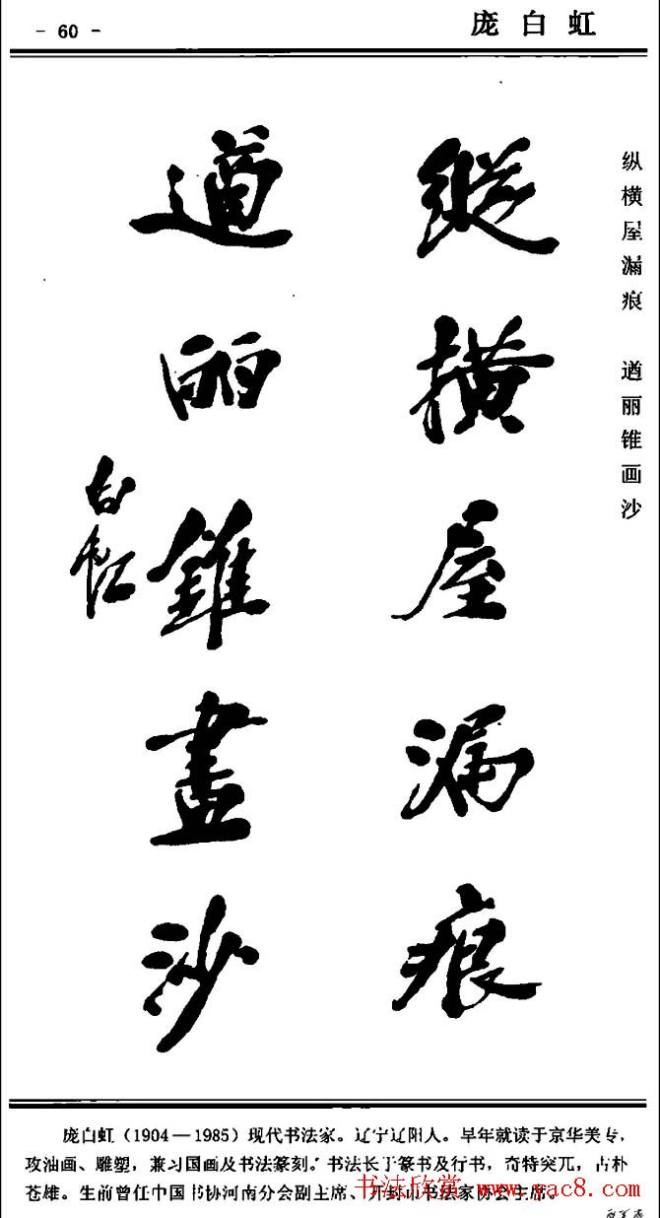 - 60 -
庞白虹
纵横屋漏痕 遒丽锥画沙
縱橫屋漏痕
遒丽錐畫沙
白虹
庞白虹(1904—1985)现代书法家。辽宁辽阳人。早年就读于京华美专,
攻油画、雕塑,兼习国画及书法篆刻。书法长于篆书及行书,奇特突兀,古朴
苍雄。生前曾任中国书协河南分会副主席、开封市书法家协会主席。
书法欣赏 www.yac8.com